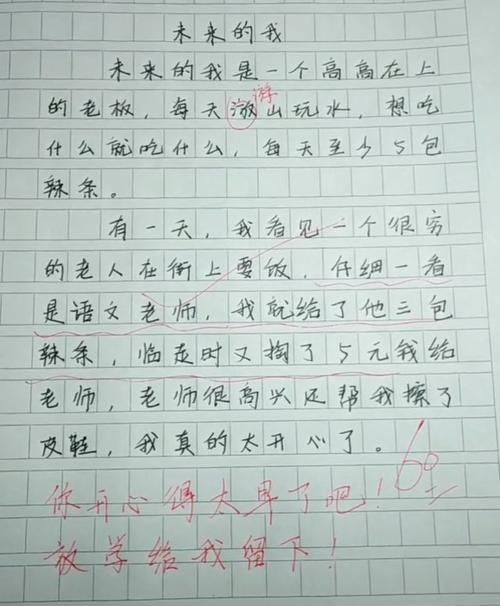 未来的我
未来的我是一个高高在上
的老板，每天游山玩水，想吃
什么就吃什么，每天至少5包
辣条。
有一天，我看见一个很穷
的老人在街上要饭，仔细一看
是语文老师，我就给了他三包
辣条，临走时又掏了5元钱给
老师，老师很高兴还帮我擦了
皮鞋，我真的太开心了。
60
你开心得太早了吧！
放学给我留下！